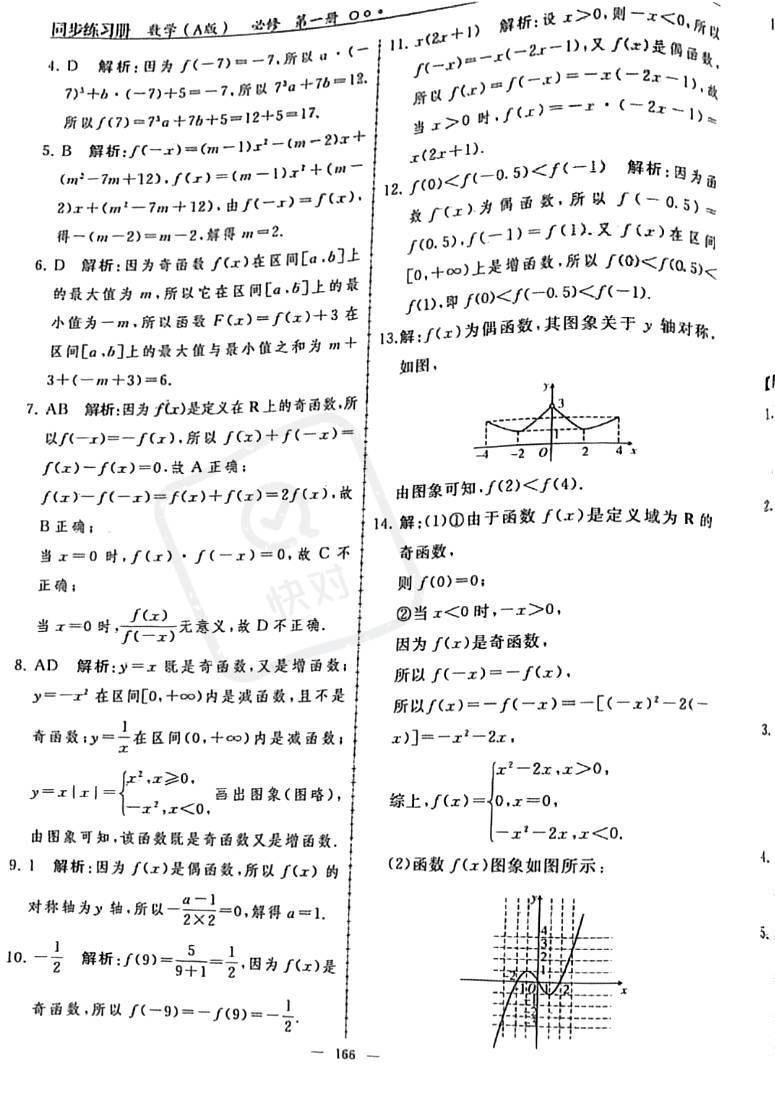 同步练习册 数学(A版) 必修 第一册
4. D 解析:因为 f(-7)=-7,所以 a·(-
7)³+b·(-7)+5=-7,所以 7³a+7b=12.
所以 f(7)=7³a+7b+5=12+5=17.
5. B 解析:f(-x)=(m-1)x²-(m-2)x+
(m²-7m+12),f(x)=(m-1)x²+(m-
2)x+(m²-7m+12),由 f(-x)=f(x),
得-(m-2)=m-2,解得 m=2.
6. D 解析:因为奇函数 f(x)在区间[a,b]上
的最大值为 m,所以它在区间[a,b]上的最
小值为-m,所以函数 F(x)=f(x)+3 在
区间[a,b]上的最大值与最小值之和为 m+
3+(-m+3)=6.
7. AB 解析:因为 f(x)是定义在 R 上的奇函数,所
以f(-x)=-f(x),所以 f(x)+f(-x)=
f(x)-f(x)=0,故 A 正确;
f(x)-f(-x)=f(x)+f(x)=2f(x),故
B 正确;
当 x=0 时,f(x)·f(-x)=0,故 C 不
正确;
当 x=0 时,f(x)/f(-x)无意义,故 D 不正确.
8. AD 解析:y=x 既是奇函数,又是增函数;
y=-x² 在区间[0,+∞)内是减函数,且不是
奇函数;y=1/x在区间(0,+∞)内是减函数;
y=x|x|={x²,x≥0, -x²,x<0, 画出图象(图略),
由图象可知,该函数既是奇函数又是增函数.
9. 1 解析:因为 f(x)是偶函数,所以 f(x) 的
对称轴为y 轴,所以-(a-1)/(2×2)=0,解得 a=1.
10. -1/2 解析:f(9)=5/(9+1)=1/2,因为 f(x)是
奇函数,所以 f(-9)=-f(9)=-1/2.
11. x(2x+1) 解析:设 x>0,则-x<0,所以
f(-x)=-x(-2x-1),又 f(x)是偶函数,
所以 f(x)=f(-x)=-x(-2x-1),故
当 x>0 时,f(x)=-x·(-2x-1)=
x(2x+1).
12. f(0)<f(-0.5)<f(-1) 解析:因为函
数 f(x)为偶函数,所以 f(-0.5)=
f(0.5),f(-1)=f(1).又 f(x)在区间
[0,+∞)上是增函数,所以 f(0)<f(0.5)<
f(1),即 f(0)<f(-0.5)<f(-1).
13.解:f(x)为偶函数,其图象关于 y 轴对称,
如图,
y
3
1
-4 -2 O 2 4 x
由图象可知,f(2)<f(4).
14. 解:(1)①由于函数 f(x)是定义域为 R 的
奇函数,
则 f(0)=0;
②当 x<0 时,-x>0,
因为 f(x)是奇函数,
所以 f(-x)=-f(x),
所以f(x)=-f(-x)=-[(-x)²-2(-
x)]=-x²-2x,
综上,f(x)={x²-2x,x>0, 0,x=0, -x²-2x,x<0.
(2)函数 f(x)图象如图所示:
y
4
3
2
1
-2 -1 O 1 2 x
快对
— 166 —
1.
2.
3.
4.
5.